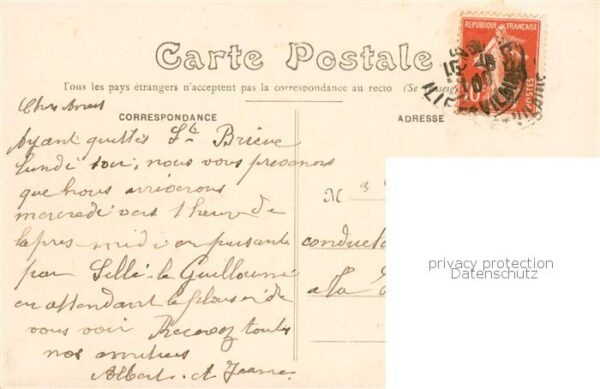 Carte Postale
Tous les pays étrangers n'acceptent pas la correspondance au recto (Se
REPUBLIQUE FRANÇAISE
10
POSTES
ILLE-VILAINE
CORRESPONDANCE
ADRESSE
Chers Amis
Ayant quittés St Brieuc
lundi soir, nous vous prevenons
que nous arriverons
mercredi vers 1 heure de
l'apres-midi en passant
par Sillé-le Guillaume
en attendant le plaisir de
vous voir Recevez toutes
nos amitiés
Albert et Jeanne
M
conducte
a la
privacy protection
Datenschutz